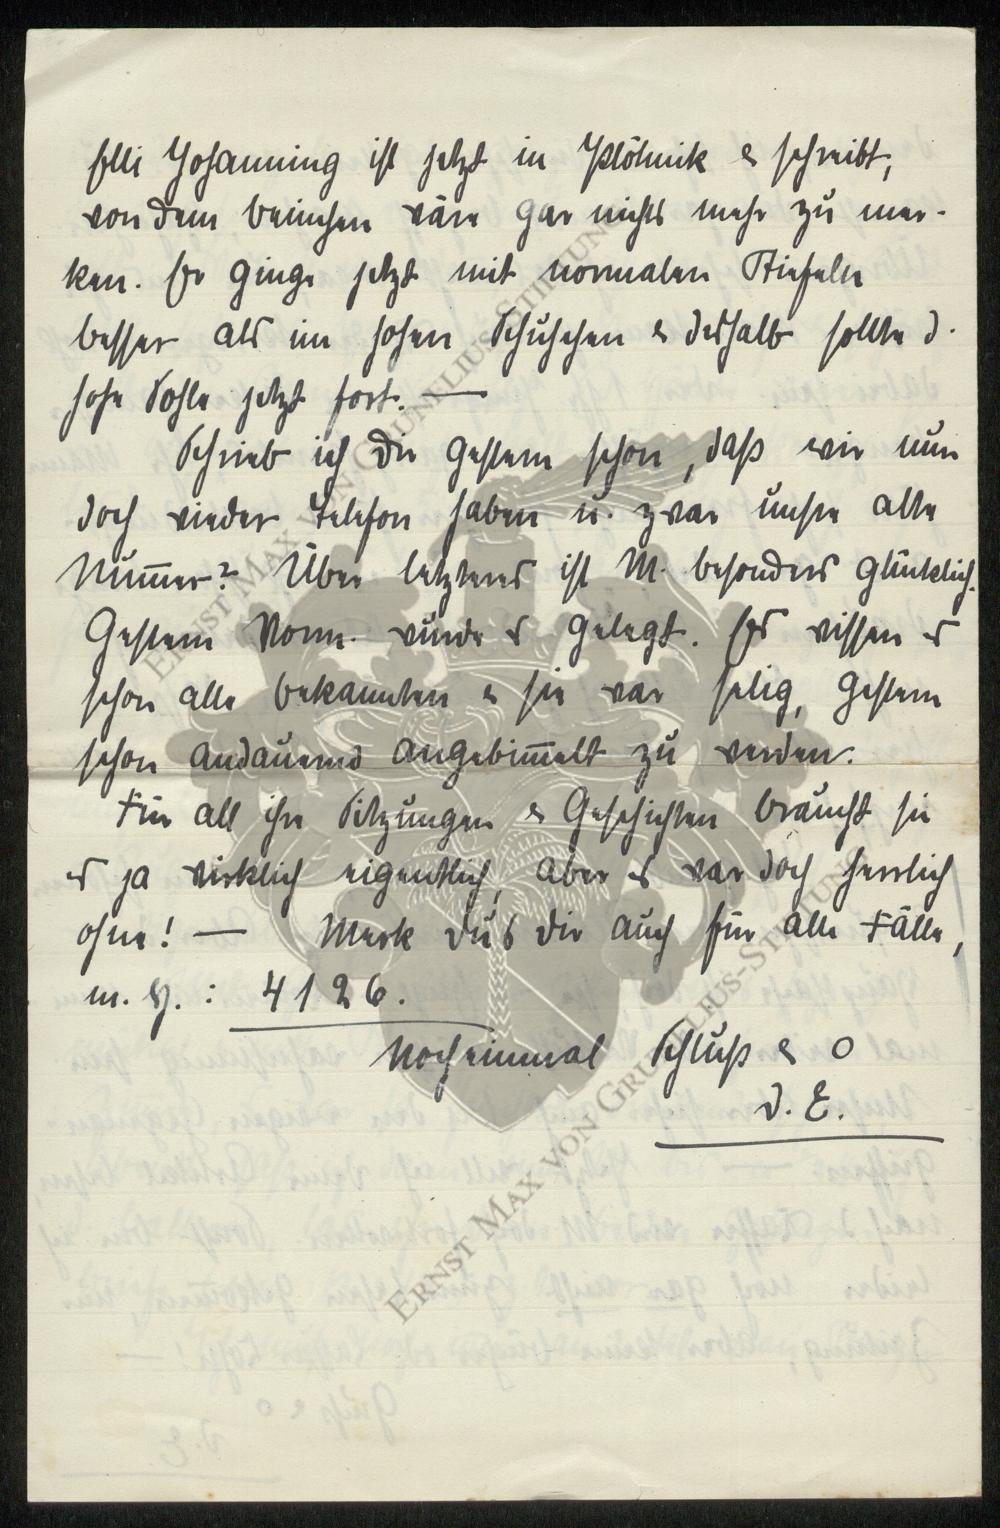 Elli Johanning ist jetzt in Plötnik & schreibt,
von dem beinchen wäre gar nichts mehr zu mer-
ken. Er ginge jetzt mit normalen Stiefeln
besser als im hohen Schuhchen & deshalb sollte d.
hohe Sohle jetzt fort. —
Schrieb ich dir gestern schon, daß wir nun
doch wieder Telefon haben u. zwar unsre alte
Num̅er? Über letzteres ist M. besonders glücklich.
Gestern Vorm. wurde es gelegt. Es wissen es
schon alle bekannten & sie war selig, gestern
schon andauernd angebim̅elt zu werden.
Für all ihre Sitzungen & Geschichten braucht sie
es ja wirklich eigentlich, aber es war doch herrlich
ohne! — Merk du's dir auch für alle Fälle,
m. H.: 4126.
Noch einmal Schluß & O
D. E.
ERNST MAX VON GRUNELIUS-STIFTUNG
ERNST MAX VON GRUNELIUS-STIFTUNG